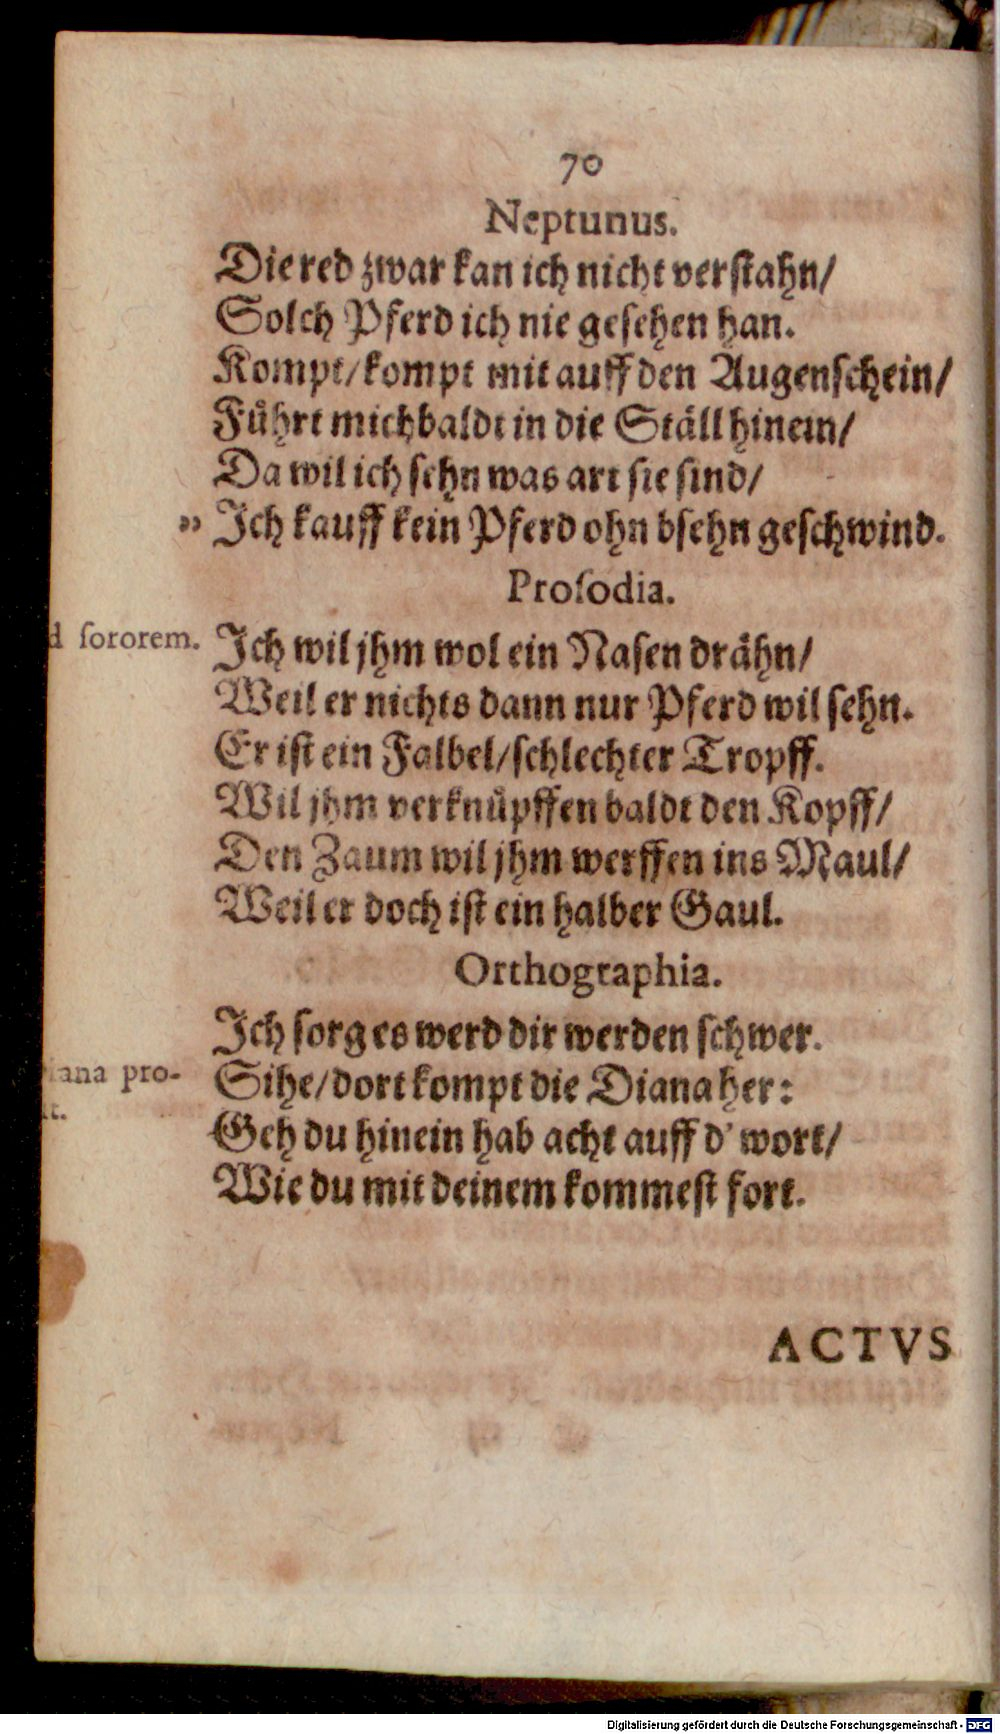 70
Neptunus.
Die red zwar kan ich nicht verstahn/
Solch Pferd ich nie gesehen han.
Kompt/kompt mit auff den Augenschein/
Fůhrt mich baldt in die Ställ hinein/
Da wil ich sehn was art sie sind/
„ Ich kauff kein Pferd ohn bsehn geschwind.
Prosodia.
d sororem. Ich wil jhm wol ein Nasen drähn/
Weil er nichts dann nur Pferd wil sehn.
Er ist ein Falbel/schlechter Tropff.
Wil jhm verknůpffen baldt den Kopff/
Den Zaum wil jhm werffen ins Maul/
Weil er doch ist ein halber Gaul.
Orthographia.
Ich sorg es werd dir werden schwer.
iana pro- Sihe/dort kompt die Diana her:
it. Geh du hinein hab acht auff d' wort/
Wie du mit deinem kommest fort.
ACTVS
Digitalisierung gefördert durch die Deutsche Forschungsgemeinschaft - DFG